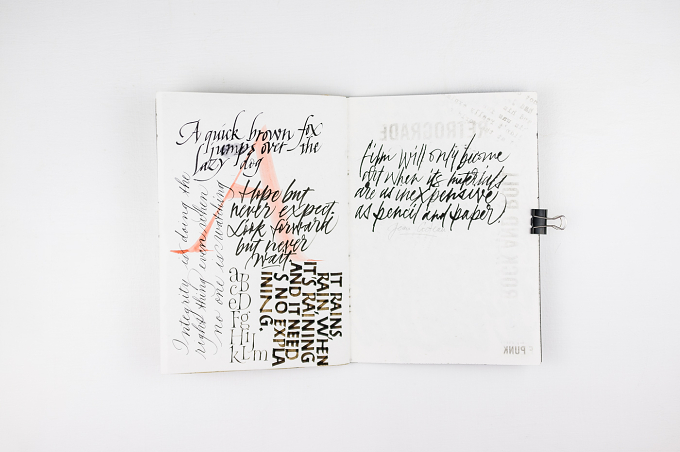 A quick brown fox
jumps over the
lazy dog
A
Hope but
never expect.
Look forward
but never
wait.
Integrity is doing the
right thing even when
no one is watching
aB
eD
Fg
klm
IT RAINS,
RAIN WHEN
IT'S RAINING
AND IT NEED
S NO EXPLA
INING.
film will only become
art when its materials
are as inexpensive
as pencil and paper.
Jean Cocteau
RETROGRADE
PUNK